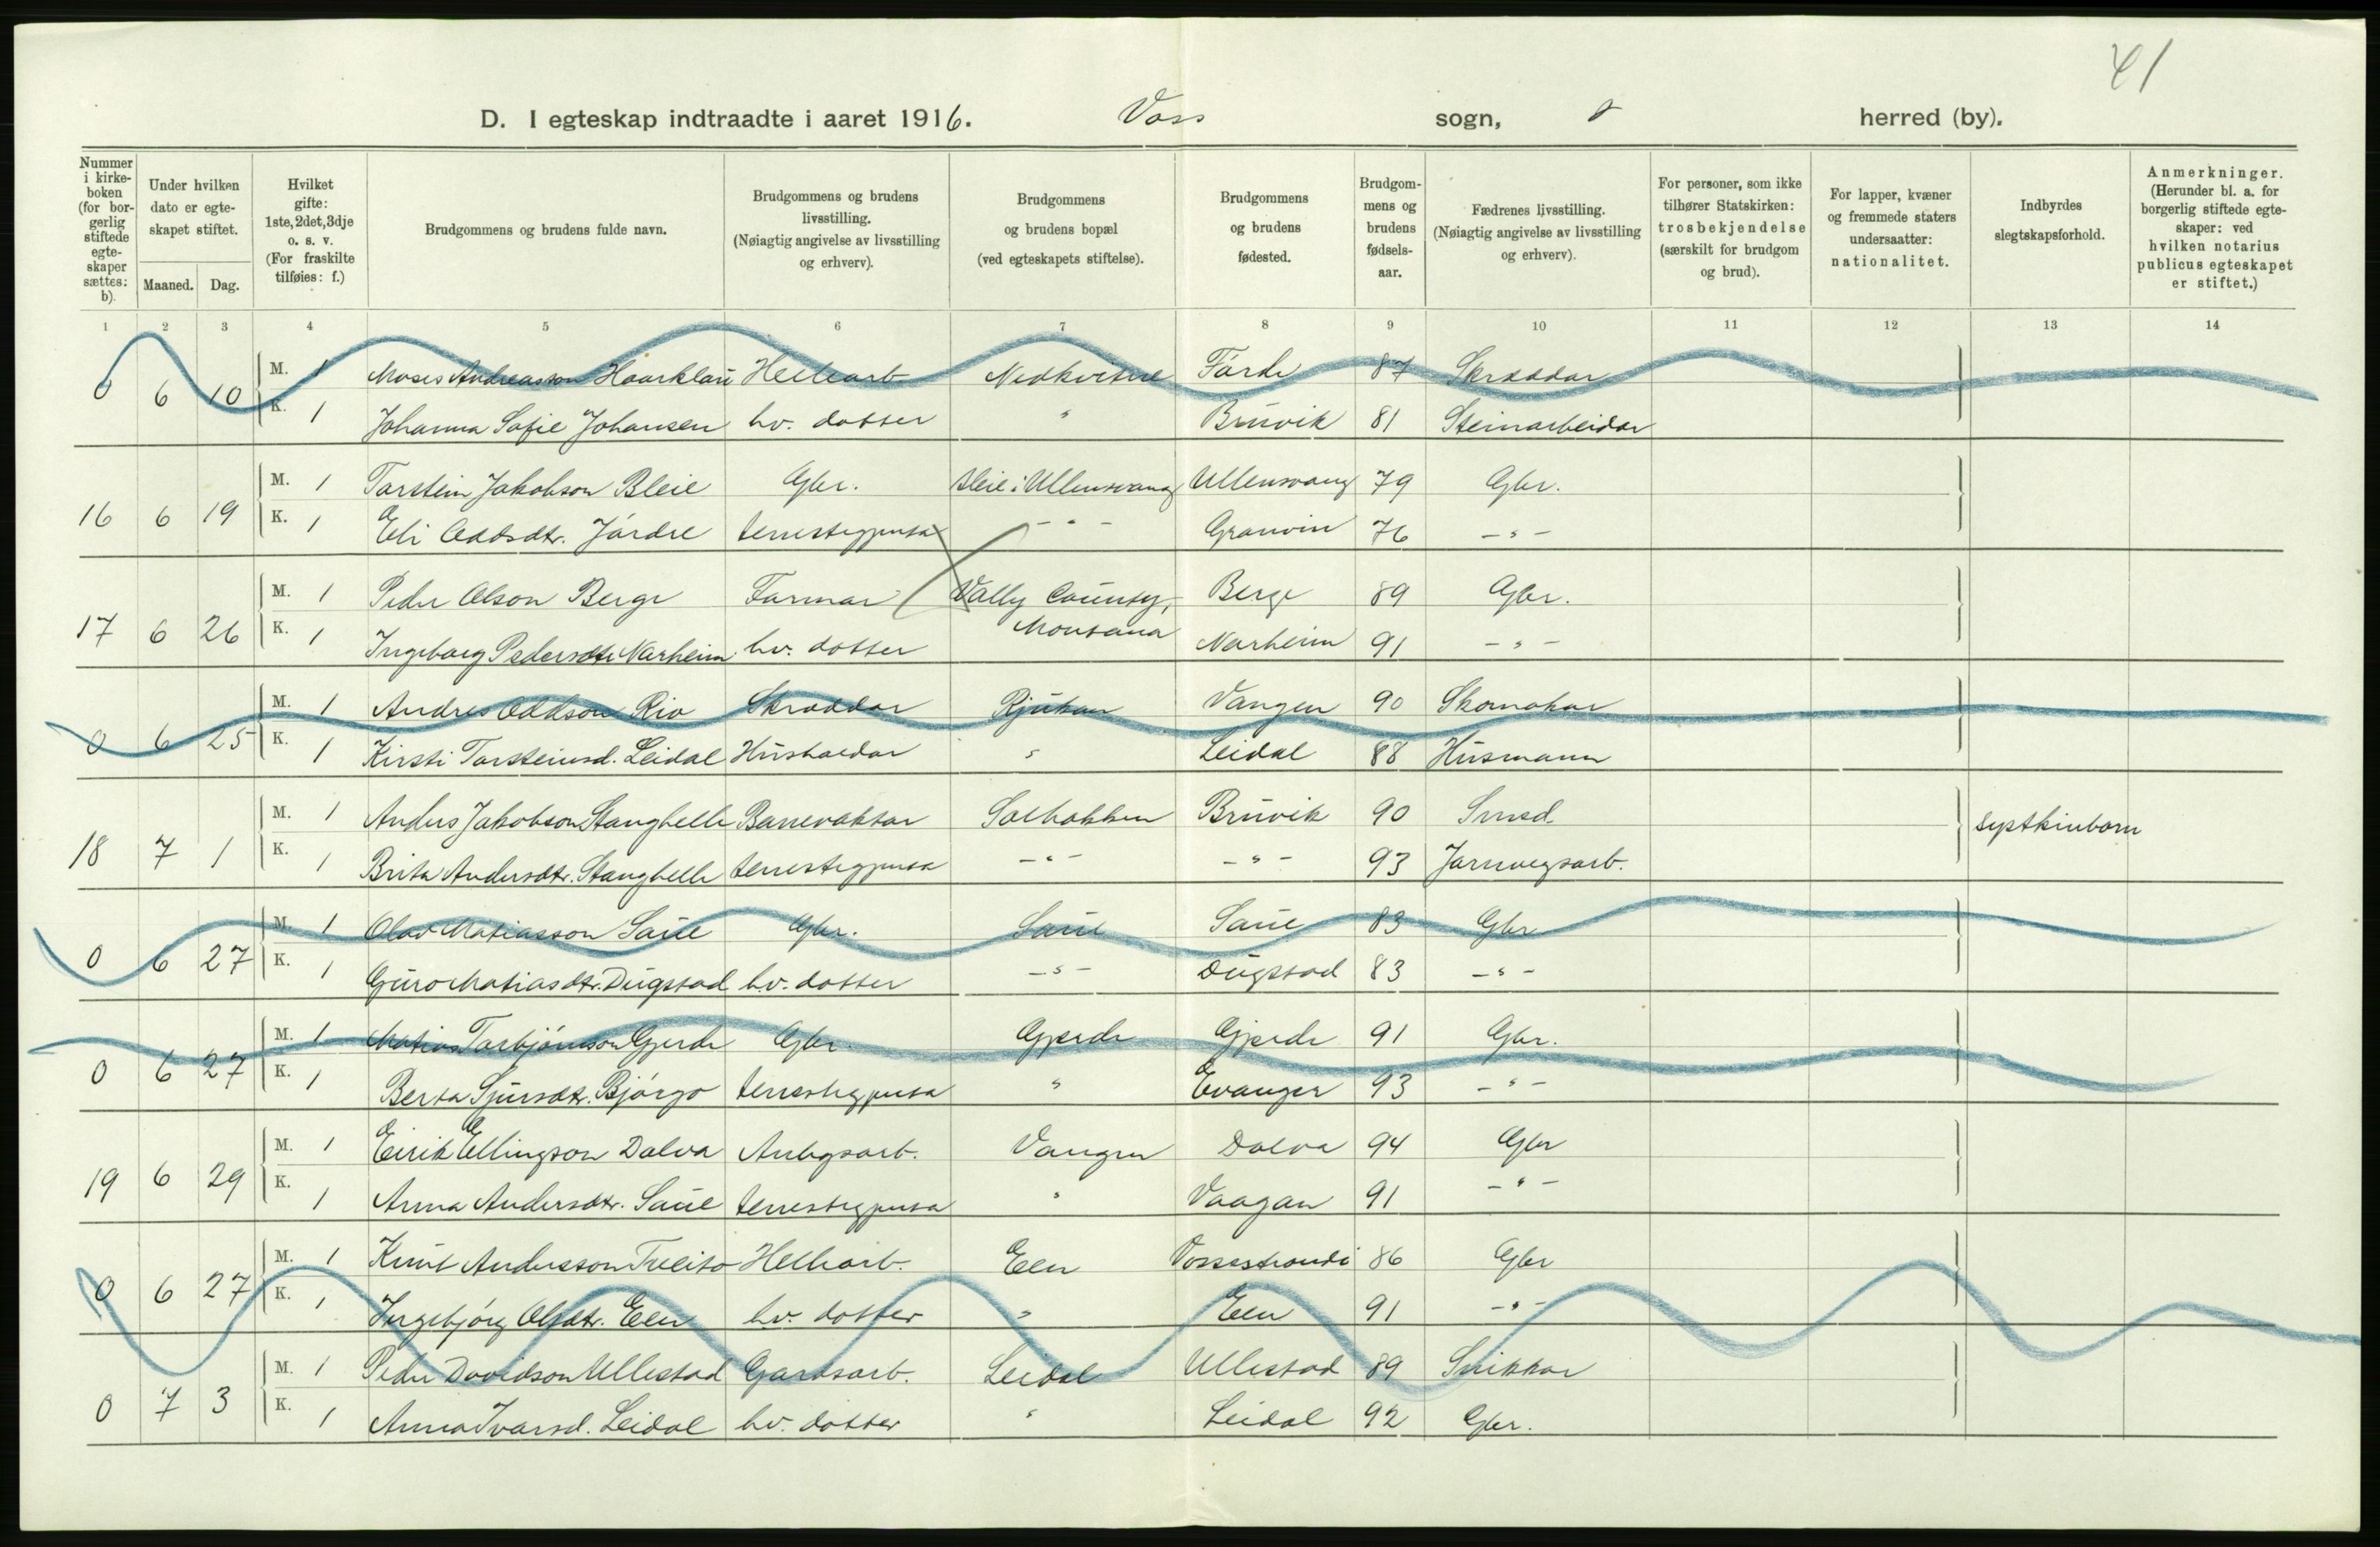 41
D. I egteskap indtraadte i aaret 1916. Voss sogn, herred (by).
Nummer i kirkeboken (for borgerlig stiftede egteskaper sættes: b).
Under hvilken dato er egteskapet stiftet.
Maaned. Dag.
Hvilket gifte: 1ste, 2det, 3dje o. s. v. (For fraskilte tilføies: f.)
Brudgommens og brudens fulde navn.
Brudgommens og brudens livsstilling. (Nøiagtig angivelse av livsstilling og erhverv).
Brudgommens og brudens bopæl (ved egteskapets stiftelse).
Brudgommens og brudens fødested.
Brudgommens og brudens fødselsaar.
Fædrenes livsstilling. (Nøiagtig angivelse av livsstilling og erhverv).
For personer, som ikke tilhører Statskirken: trosbekjendelse (særskilt for brudgom og brud).
For lapper, kvæner og fremmede staters undersaatter: nationalitet.
Indbyrdes slegtskapsforhold.
Anmerkninger. (Herunder bl. a. for borgerlig stiftede egteskaper: ved hvilken notarius publicus egteskapet er stiftet.)
1 2 3 4 5 6 7 8 9 10 11 12 13 14
0 6 10 M. 1 Moses Andreasson Haarklau Helearb. Nedkvitne Fárde 87 Skraddar
K. 1 Johanna Sofie Johansen hv. dotter " Bruvik 81 Steinarbeidar
16 6 19 M. 1 Torstein Jakobson Bleie Gbr. Bleie i Ullensvang Ullensvang 79 Gbr.
K. 1 Eli Oddsdtr. Járdre tenestegjenta - " - Granvin 76 - " -
17 6 26 M. 1 Peder Olson Berge Farmar Vally County, Montana Berge 89 Gbr.
K. 1 Ingeborg Pedersdtr Narheim hv. dotter Narheim 91 - " -
0 6 25 M. 1 Andres Oddson Rio Skraddar Rjukan Vangen 90 Skomakar
K. 1 Kirsti Torsteinsd. Leidal Hushaldar " Leidal 88 Husmann
18 7 1 M. 1 Anders Jakobson Stanghelle Banevaktar Solbakken Bruvik 90 Smed
K. 1 Brita Andersdtr. Stanghelle tenestegjenta - " - - " - 93 Jarnvegsarb.
systkinborn
0 6 27 M. 1 Olav Matiasson Saue Gbr. Saue Saue 83 Gbr
K. 1 Guro Matiasdtr. Dugstad hv. dotter - " - Dugstad 83 - " -
0 6 27 M. 1 Matias Torbjörnson Gjerde Gbr. Gjerde Gjerde 91 Gbr.
K. 1 Berta Sjursdtr. Bjórgo tenestegjenta " Evanger 93 - " -
19 6 29 M. 1 Eirik Ellingson Dalva Anlegsarb. Vangen Dalva 94 Gbr
K. 1 Anna Andersdtr. Saue tenestegjenta " Vaagan 91 - " -
0 6 27 M. 1 Knut Andersson Tveito Helearb. Een Vossestrandi 86 Gbr
K. 1 Ingebjórg Olsdtr. Een hv. dotter " Een 91 - " -
0 7 3 M. 1 Peder Davidson Ullestad Gardsarb. Leidal Ullestad 89 Snikkar
K. 1 Anna Ivarsd. Leidal hv. dotter " Leidal 92 Gbr.